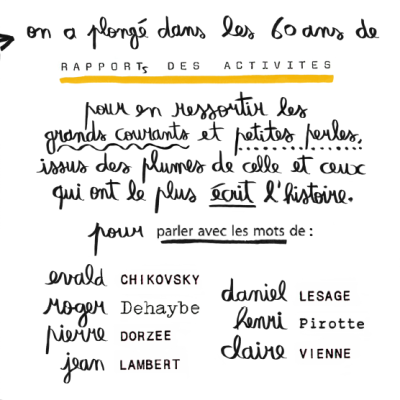 on a plongé dans les 60 ans de
RAPPORTS DES ACTIVITES
pour en ressortir les
grands courants et petites perles,
issus des plumes de celle et ceux
qui ont le plus écrit l'histoire.
pour parler avec les mots de :
evald CHIKOVSKY
roger Dehaybe
pierre DORZEE
jean LAMBERT
daniel LESAGE
henri Pirotte
claire VIENNE